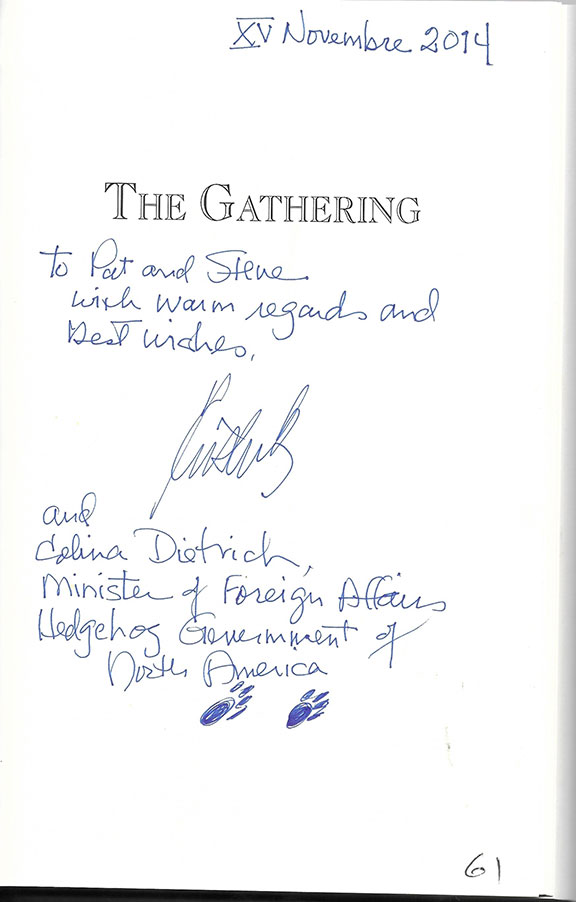 XV Novembre 2014
THE GATHERING
to Pat and Steve
with warm regards and
Best wishes,
and
Celina Dietrich,
Minister of Foreign Affairs
Hedgehog Government of
North America
61